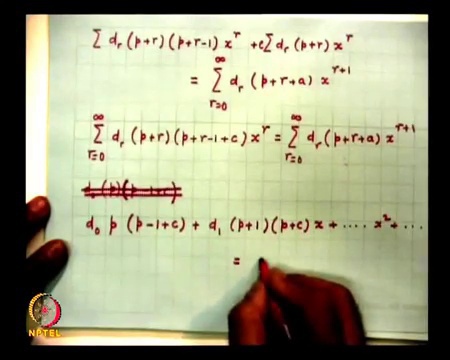 Σ dᵣ (p+r) (p+r-1) xʳ + c Σ dᵣ (p+r) xʳ
= Σ_{r=0}^{∞} dᵣ (p+r+a) x^{r+1}
Σ_{r=0}^{∞} dᵣ (p+r) (p+r-1+c) xʳ = Σ_{r=0}^{∞} dᵣ (p+r+a) x^{r+1}
d₀ p (p-1+c) + d₁ (p+1) (p+c) x + .... x² + ...
=
NPTEL